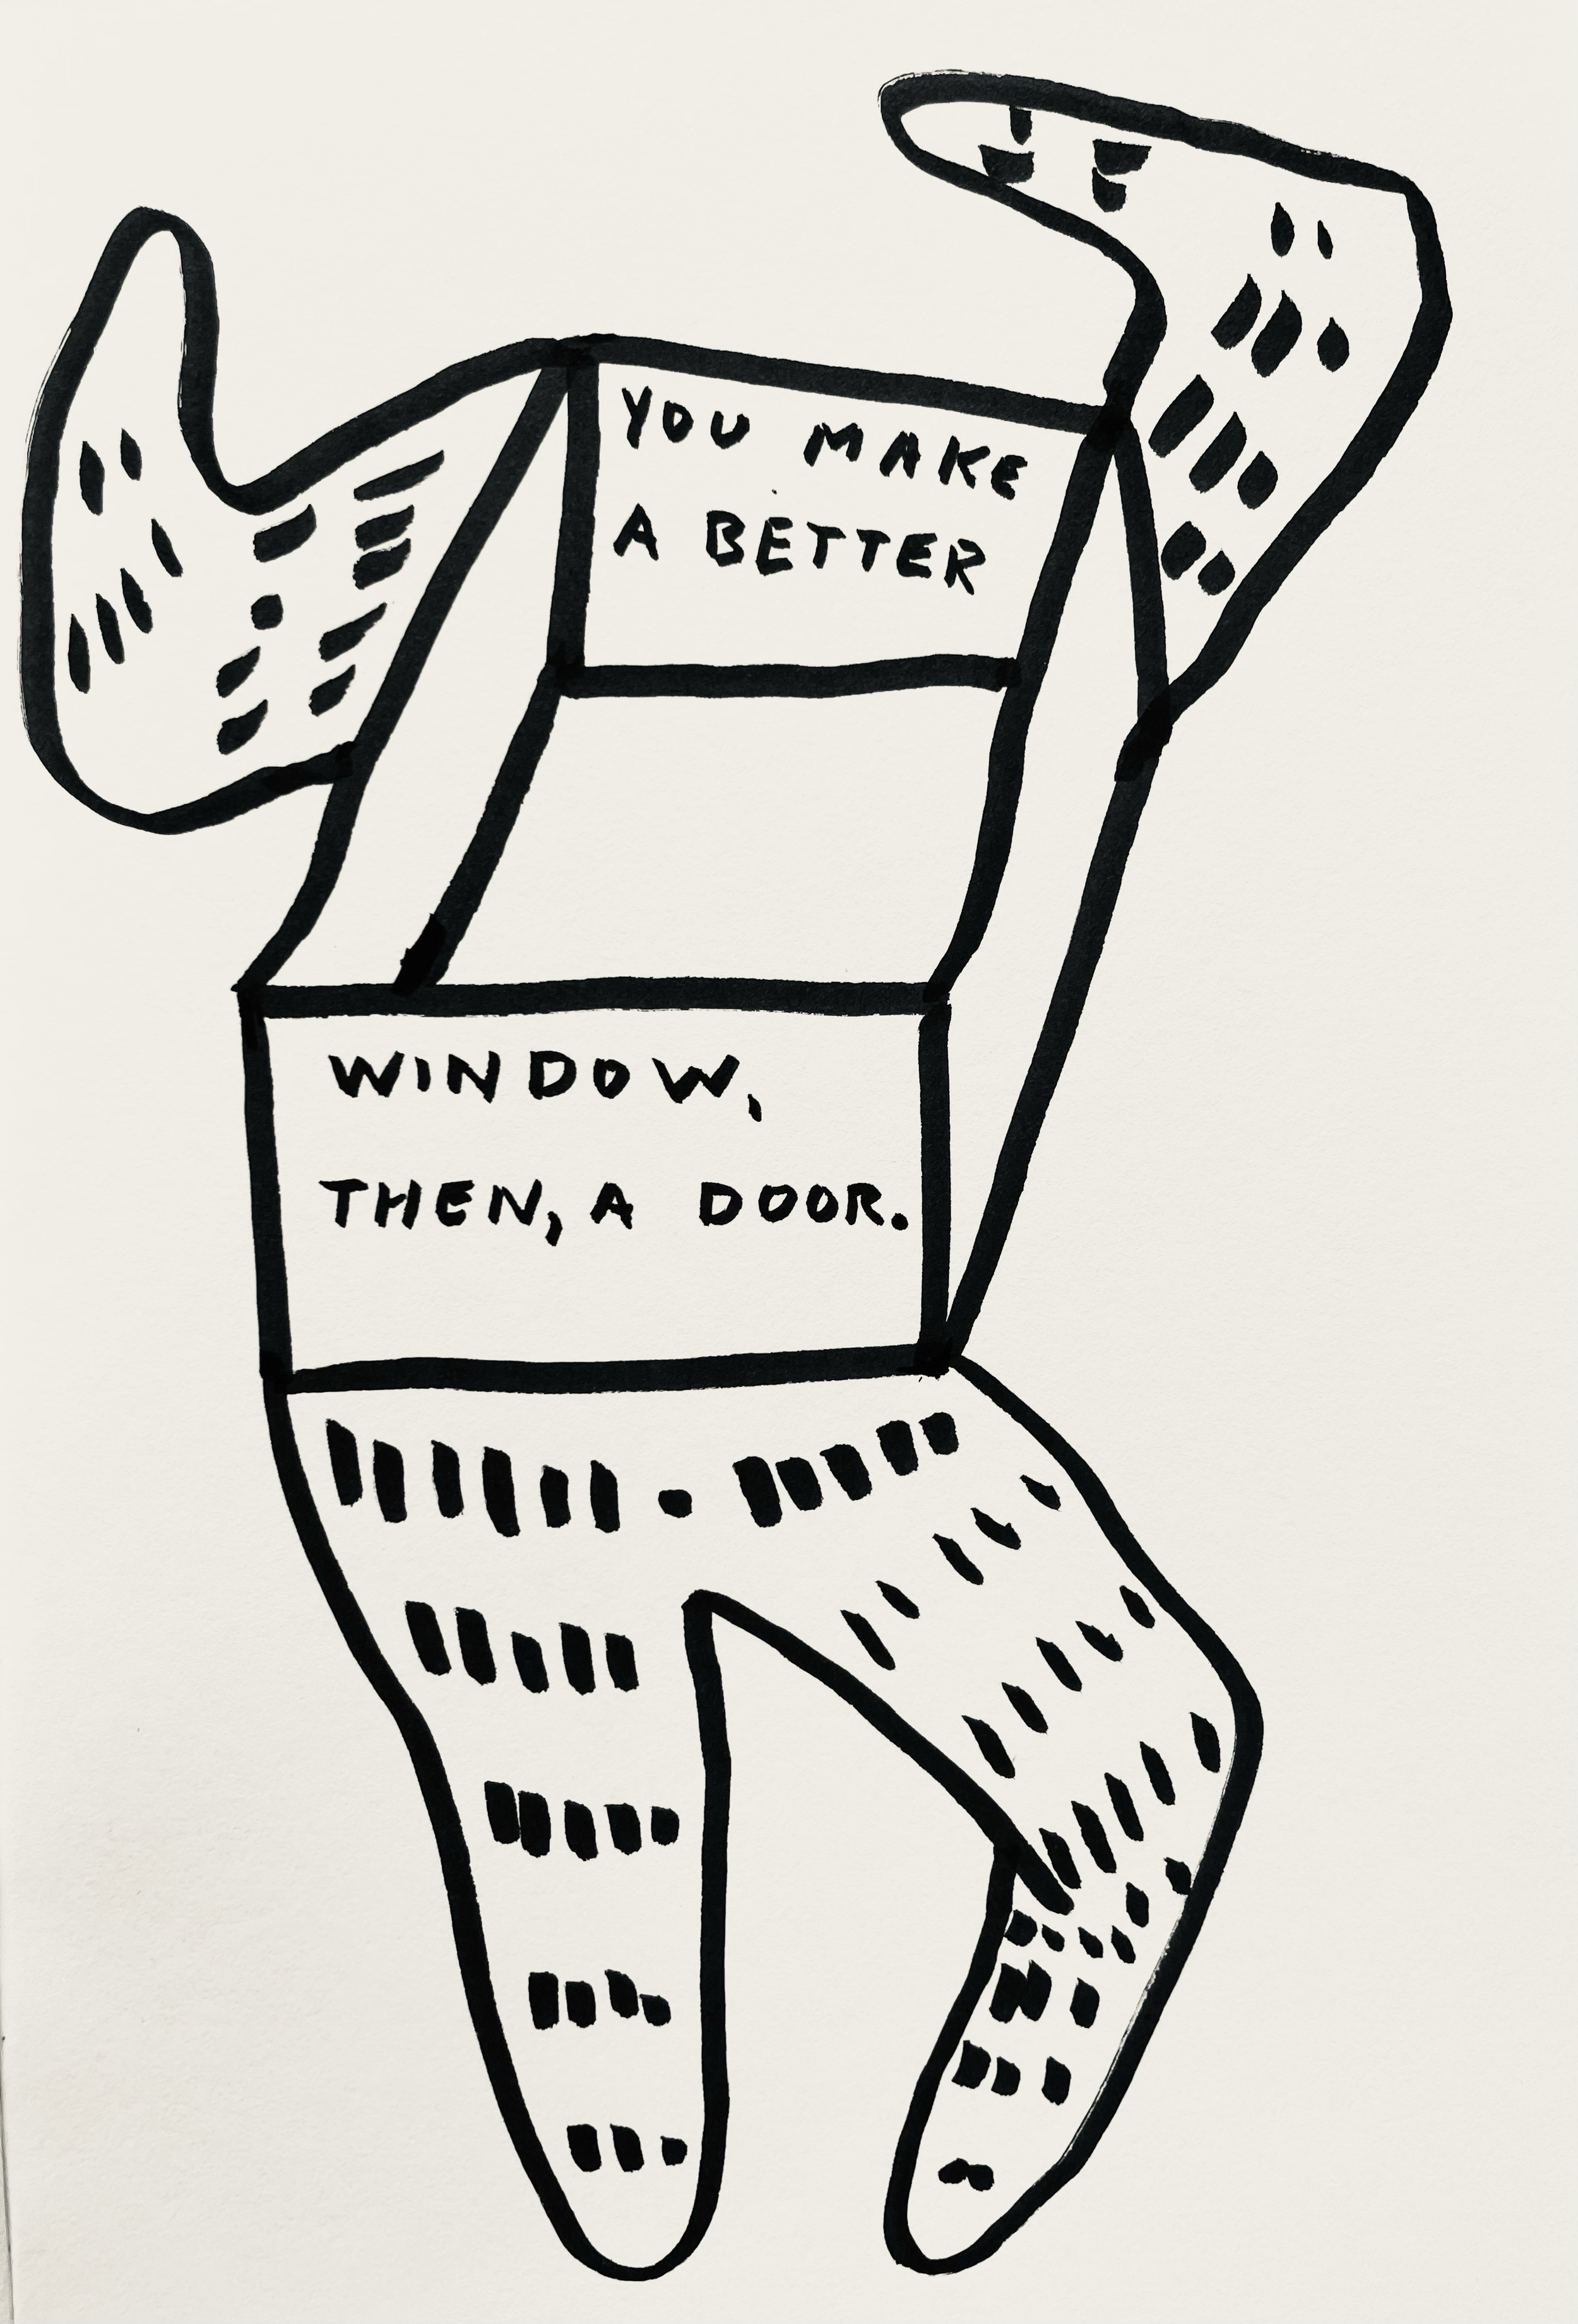 YOU MAKE
A BETTER
WINDOW,
THEN, A DOOR.